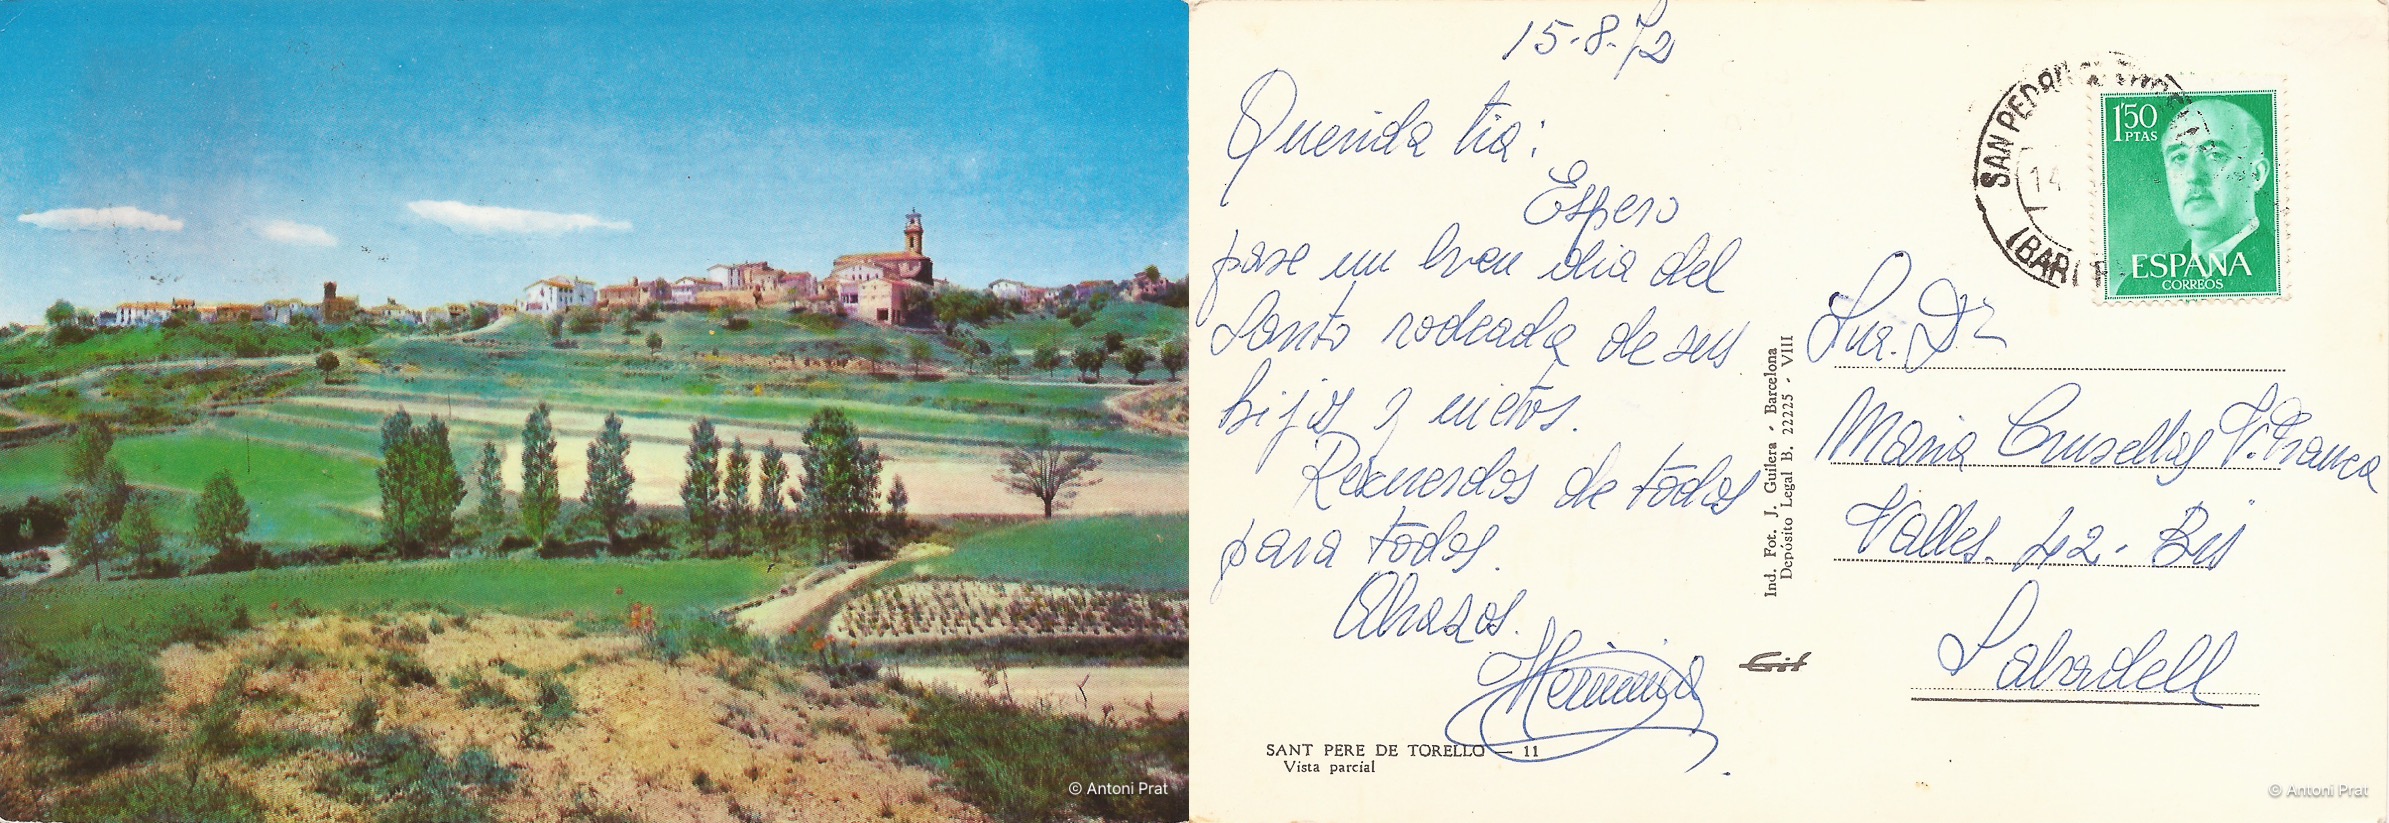 © Antoni Prat
15-8-72
Querida tia:
Espero
pase un buen dia del
Santo rodeada de sus
hijos y nietos.
Recuerdos de todos
para todos.
Abrazos.
Herminia
SANT PERE DE TORELLO — 11
Vista parcial
Ind. Fot. J. Guilera - Barcelona
Depósito Legal B. 22225 - VIII
SAN PEDRO
14
(BAR
1'50
PTAS
ESPAÑA
CORREOS
Sra. Dª
Maria Crusellas V. Franca
Valles. 42 - Bis
Sabadell
© Antoni Prat